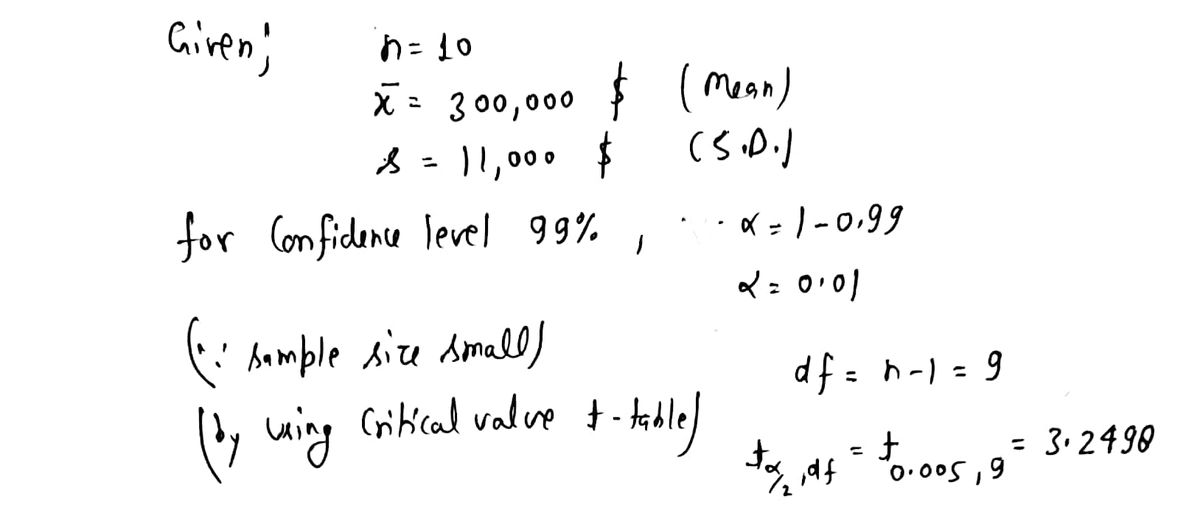 Given; n = 10
x̄ = 300,000 $ (Mean)
s = 11,000 $ (S.D.)
for Confidence level 99%, ∴ α = 1 - 0.99
α = 0.01
(∵ sample size small)
df = n - 1 = 9
(by using Critical value t-table)
t α/2, df = t 0.005, 9 = 3.2498